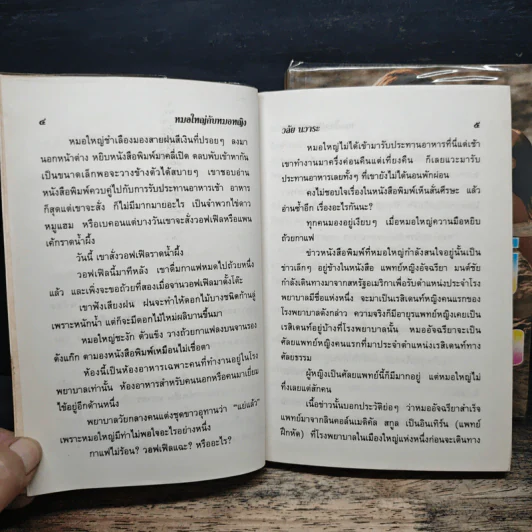 ๔ หมอใหญ่กับหมอหญิง
หมอใหญ่ชำเลืองมองสายฝนสีเงินที่ปรอยๆ ลงมา
นอกหน้าต่าง หยิบหนังสือพิมพ์มาคลี่เปิด ตลบพับเข้าหากัน
เป็นขนาดเล็กพอจะวางข้างตัวได้สบายๆ เขาชอบอ่าน
หนังสือพิมพ์ควบคู่ไปกับการรับประทานอาหารเช้า อาหาร
ก็สุดแต่เขาจะสั่ง ก็ไม่มีมากมายอะไร เป็นจำพวกไข่ดาว
หมูแฮม หรือเบคอนแต่บางวันเขาจะสั่งวอฟเฟิลหรือแพน
เค้กราดน้ำผึ้ง
วันนี้ เขาสั่งวอฟเฟิลราดน้ำผึ้ง
วอฟเฟิลนี้มาทีหลัง เขาดื่มกาแฟหมดไปถ้วยหนึ่ง
แล้ว และเพิ่งจะขอถ้วยที่สองเมื่อจานวอฟเฟิลมาตั้งโต๊ะ
เขาฟังเสียงฝน ฝนจะทำให้ดอกไม้บางชนิดก้านลู่
เพราะหนักน้ำ แต่ก็จะมีดอกไม้ใหม่ผลิบานขึ้นมา
หมอใหญ่ชะงัก ตัวแข็ง วางถ้วยกาแฟลงบนจานรอง
ดังแก๊ก ตามองหนังสือพิมพ์เหมือนไม่เชื่อตา
ห้องนี้เป็นห้องอาหารเฉพาะคนที่ทำงานอยู่ในโรง
พยาบาลเท่านั้น ห้องอาหารสำหรับคนนอกหรือคนมาเยี่ยม
ใช้อยู่อีกด้านหนึ่ง
พยาบาลวัยกลางคนแต่งชุดขาวอุทานว่า "แย่แล้ว"
เพราะหมอใหญ่มีท่าไม่พอใจอะไรอย่างหนึ่ง
กาแฟไม่ร้อน? วอฟเฟิลแฉะ? หรืออะไร?
วลัย นวาระ ๕
หมอใหญ่ไม่ได้เข้ามารับประทานอาหารที่นี่แต่เช้า
เขาทำงานมาครึ่งค่อนคืนแต่เที่ยงคืน ก็เลยแวะมารับ
ประทานอาหารเลยทั้งๆ ที่เขายังไม่ได้นอนพักผ่อน
คงไม่ชอบใจเรื่องในหนังสือพิมพ์เห็นสั่นศีรษะ แล้ว
อ่านซ้ำอีก เรื่องอะไรกันนะ?
ทุกคนมองอยู่เงียบๆ เมื่อหมอใหญ่ความมือหยิบ
ถ้วยกาแฟ
ข่าวหนังสือพิมพ์ที่หมอใหญ่กำลังสนใจอยู่นั้นเป็น
ข่าวเล็กๆ อยู่ข้างในหนังสือ แพทย์หญิงอัจฉรียา มนต์ชัย
กำลังเดินทางมาจากสหรัฐอเมริกาเพื่อรับตำแหน่งประจำโรง
พยาบาลมีชื่อแห่งหนึ่ง จะมาเป็นเรสิเดนท์หญิงคนแรกของ
โรงพยาบาลดังกล่าว ความจริงก็มีอายุรแพทย์หญิงเคยเป็น
เรสิเดนท์อยู่บ้างที่โรงพยาบาลนั้น หมออัจฉรียาจะเป็น
แพทย์หญิงคนแรกที่มาประจำตำแหน่งเรสิเดนท์ทาง
ศัลยกรรม
ผู้หญิงเป็นศัลยแพทย์นี้ก็มีมากอยู่ แต่หมอใหญ่ไม่
ทึ่งเลยแต่สักคน
เนื้อข่าวนั้นบอกประวัติย่อๆ ว่าหมออัจฉรียาสำเร็จ
แพทย์มาจากลินคอล์นเมดิคัล สกูล เป็นอินเทิร์น (แพทย์
ฝึกหัด) ที่โรงพยาบาลในเมืองใหญ่แห่งหนึ่งก่อนจะเดินทาง